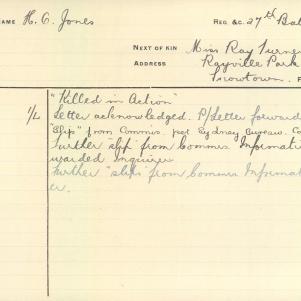 NAME H. C. Jones REG &C. 27th Bat
NEXT OF KIN Miss Ray Turne
ADDRESS Rayville Park
Trowtown.
"Killed in Action"
1/L Letter acknowledged. P/Letter forward
"Slip" from Commis. per Sydney Bureau. Co
Further slip from Commrs Informati
warded inquirer
Further "slips" from Commrs Informat
er.